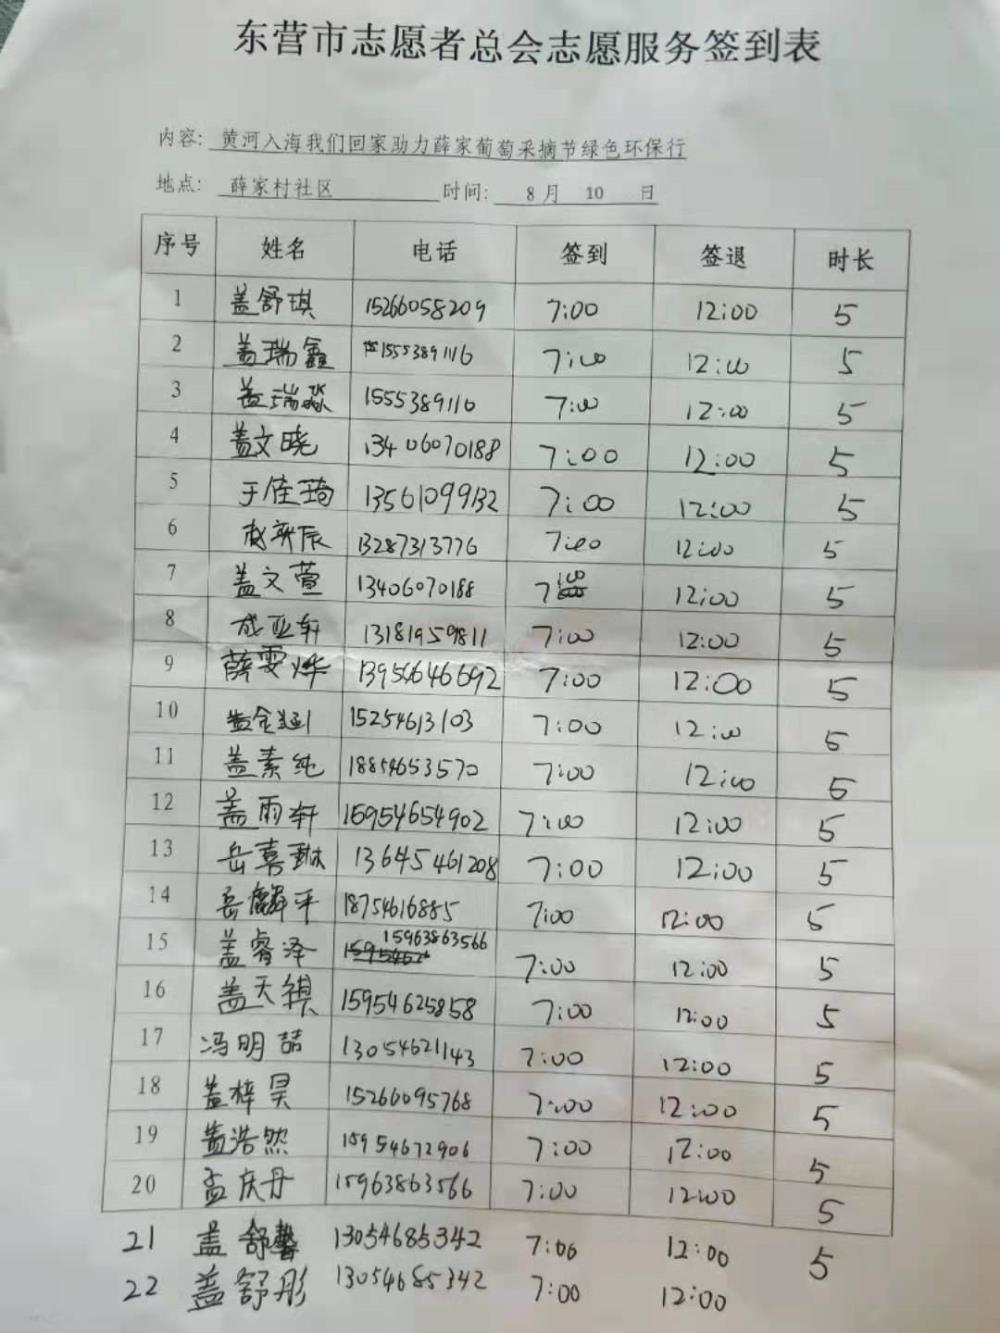 东营市志愿者总会志愿服务签到表
内容: 黄河入海我们回家助力薛家葡萄采摘节绿色环保行
地点: 薛家村社区 时间: 8 月 10 日
序号 姓名 电话 签到 签退 时长
1 盖舒琪 15266058209 7:00 12:00 5
2 盖瑞鑫 1555389116 7:00 12:00 5
3 盖瑞淼 1555389116 7:00 12:00 5
4 盖文晓 13406070188 7:00 12:00 5
5 于佳琦 13561099132 7:00 12:00 5
6 赵奕辰 13287313776 7:00 12:00 5
7 盖文萱 13406070188 7:00 12:00 5
8 成亚轩 13181959811 7:00 12:00 5
9 薛雯烨 13954646692 7:00 12:00 5
10 15254613103 7:00 12:00 5
11 盖素纯 18854653570 7:00 12:00 5
12 盖雨轩 15954654902 7:00 12:00 5
13 岳喜琳 13645461208 7:00 12:00 5
14 岳麟平 18754616885 7:00 12:00 5
15 盖睿泽 15963863566 7:00 12:00 5
16 盖天祺 15954625858 7:00 12:00 5
17 冯明喆 13054621143 7:00 12:00 5
18 盖梓昊 15266095768 7:00 12:00 5
19 盖浩然 15954672906 7:00 12:00 5
20 孟庆丹 15963863566 7:00 12:00 5
21 盖舒馨 13054685342 7:00 12:00 5
22 盖舒彤 13054685342 7:00 12:00